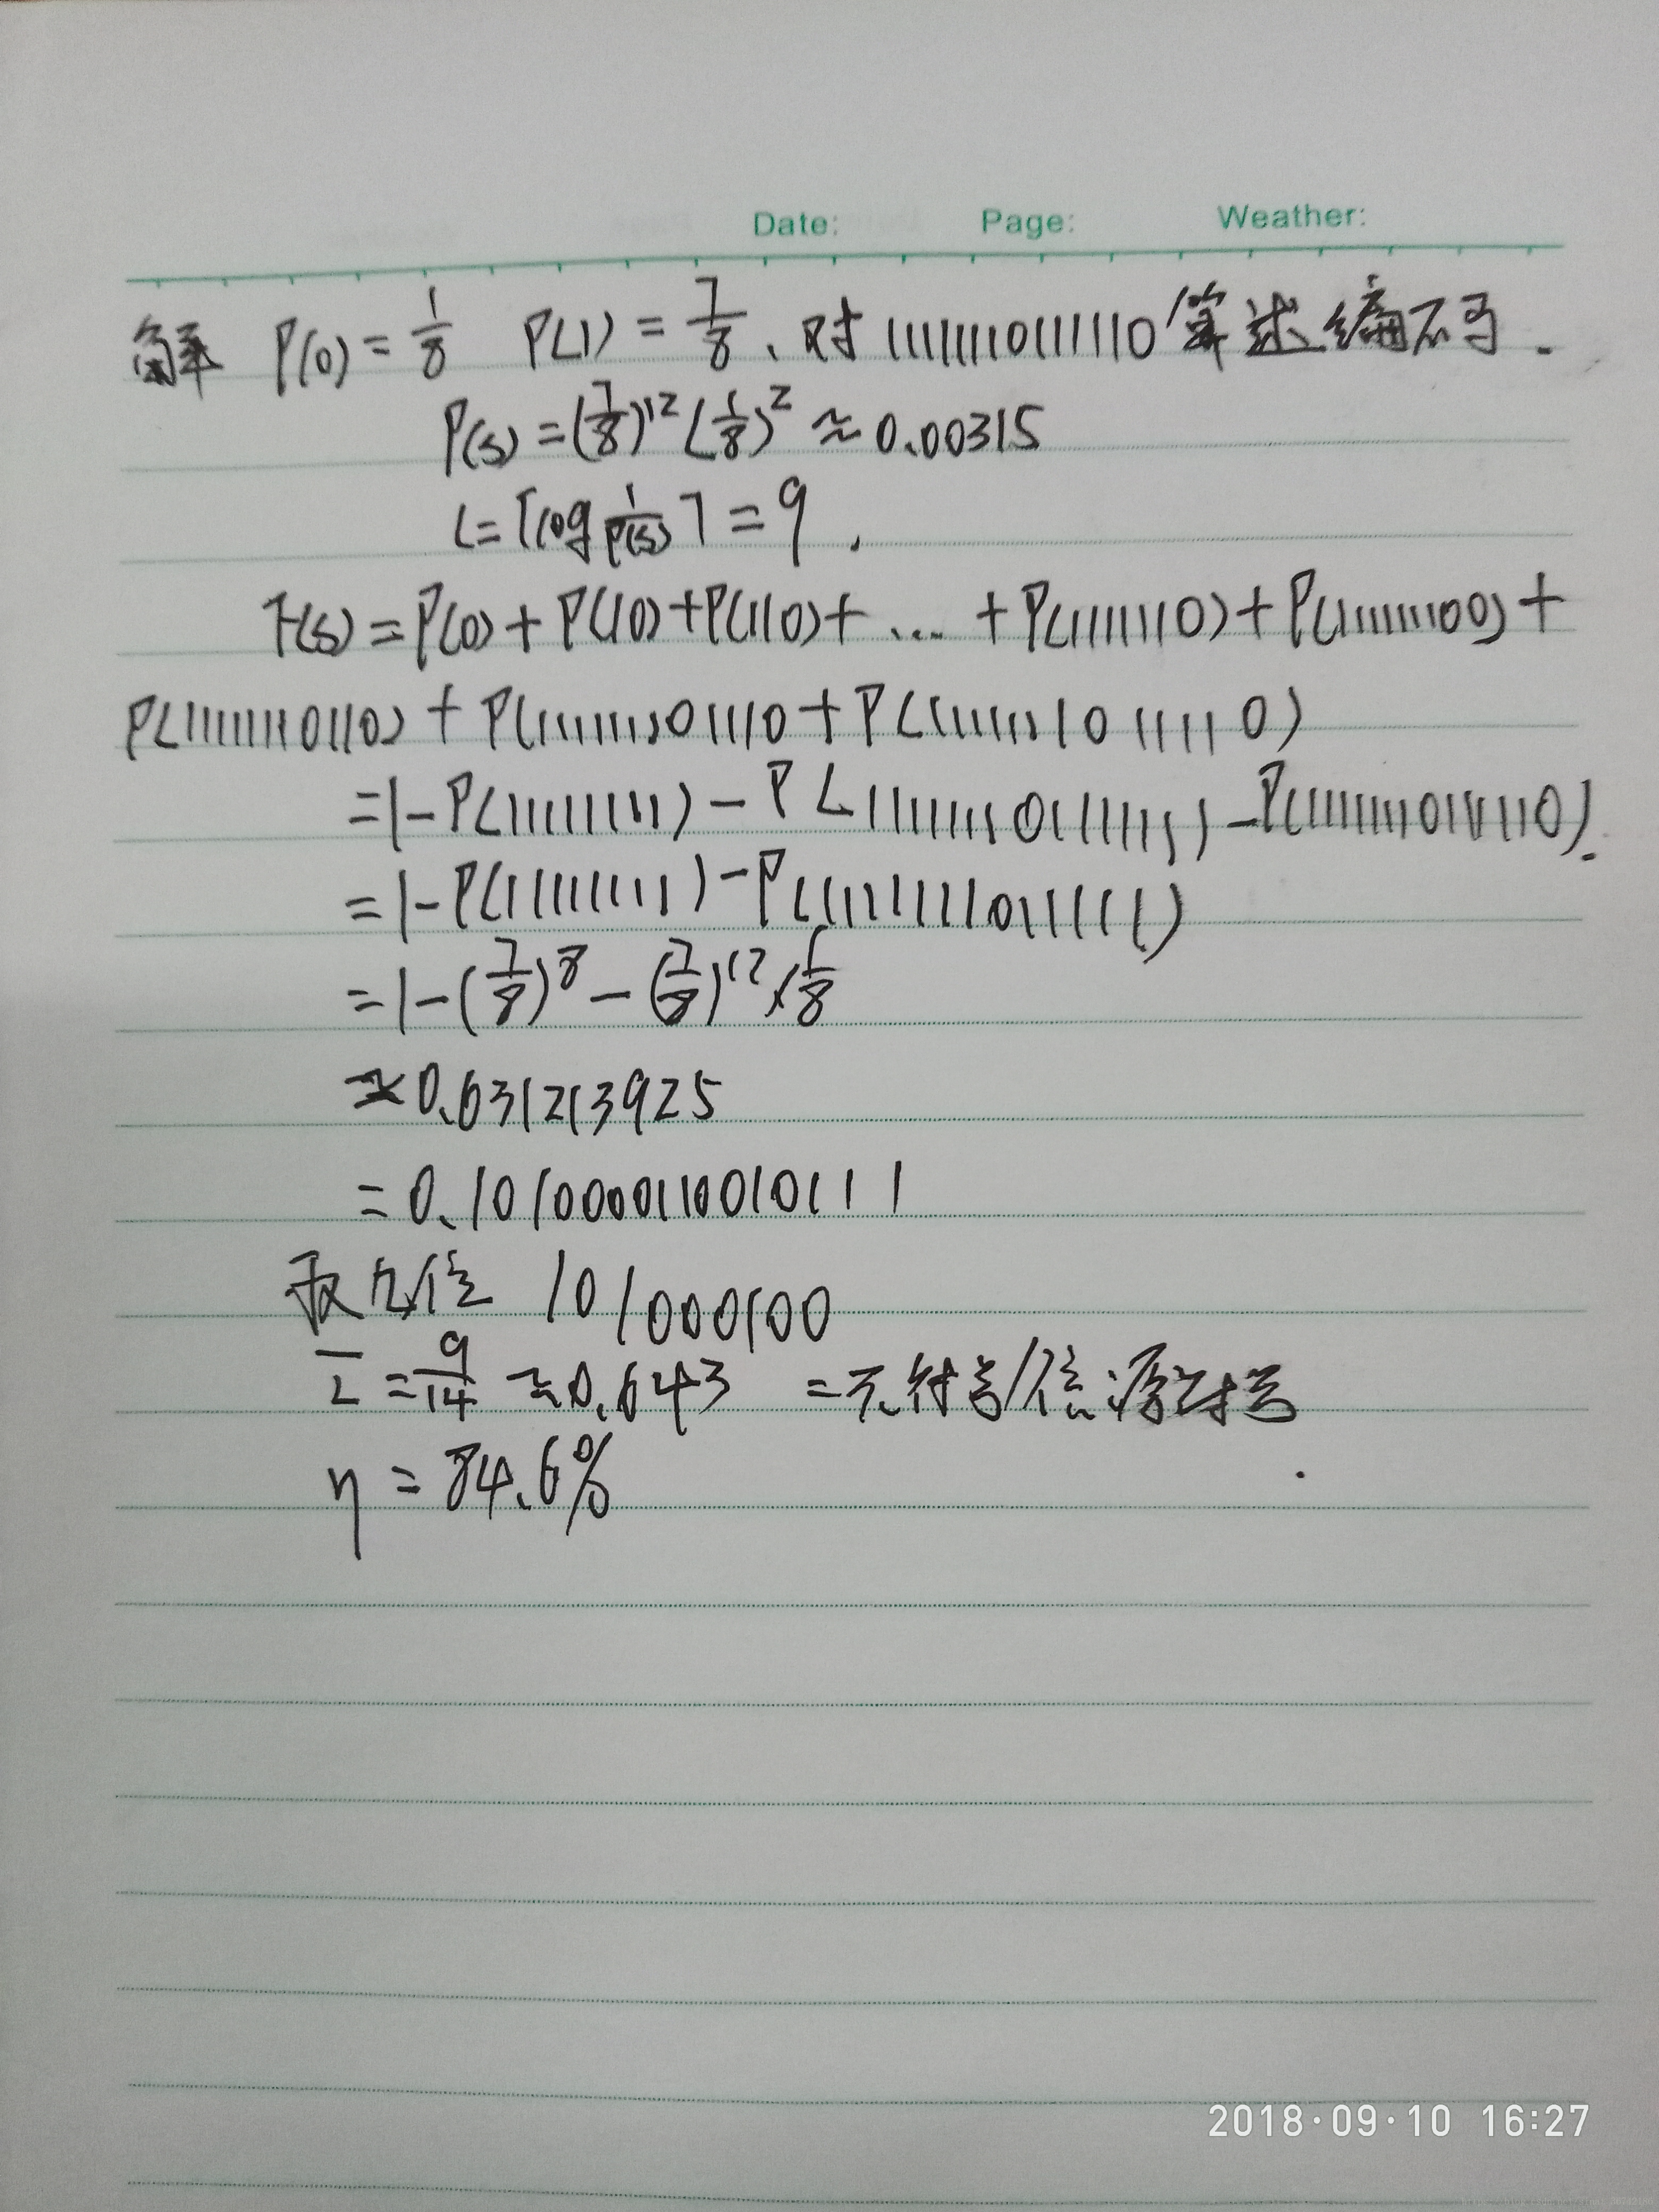 Date: Page: Weather:
解 P(0)=1/8 P(1)=7/8、对11111110111110算术编码.
P(s)=(7/8)^12(1/8)^2≈0.00315
L=⌈log 1/P(s)⌉=9,
F(s)=P(0)+P(10)+P(110)+...+P(11111110)+P(1111111100)+
P(111111110110)+P(1111111101110+P(11111111011110)
=1-P(111111111)-P(1111111101111111)-P(111111111011110).
=1-P(111111111)-P(11111111011111)
=1-(7/8)^8-(7/8)^12×1/8
≈0.631213925
=0.1010000110010111
取九位 101000100
L̄=9/14≈0.643 =元符号/信源符号
η=84.6%
2018·09·10 16:27